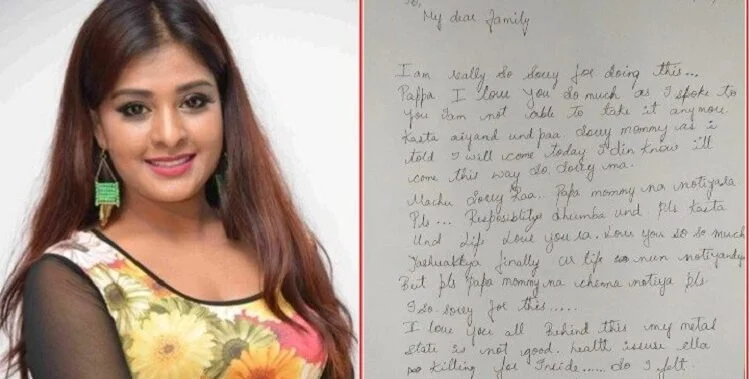 To,
My dear family
I am really so sorry for doing this...
Pappa I love you so much as I spoke to
you I am not able to take it anymore
Kasta aiyand und paa. Sorry mommy as i
told I will come today I din know i'll
come this way so sorry ma.
Machu Sorry Raa... Papa mommy na notiyala
Pls... Resposiblitys dhumba und pls kasta
Und life love you la. love you so so much
finally ur life nun notiyandye
But pls Papa mommy na chenna notiya pls.
I so sorry for this......
I love you all Behind this my metal
State is not good. health issuse ella
killing for Inside...... So I felt